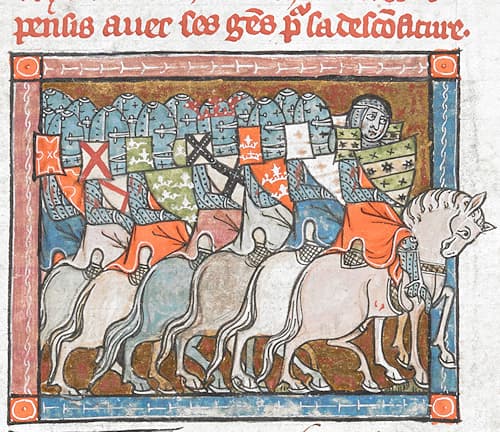 pensis auec ses gēs pʳ sa descōfiture.